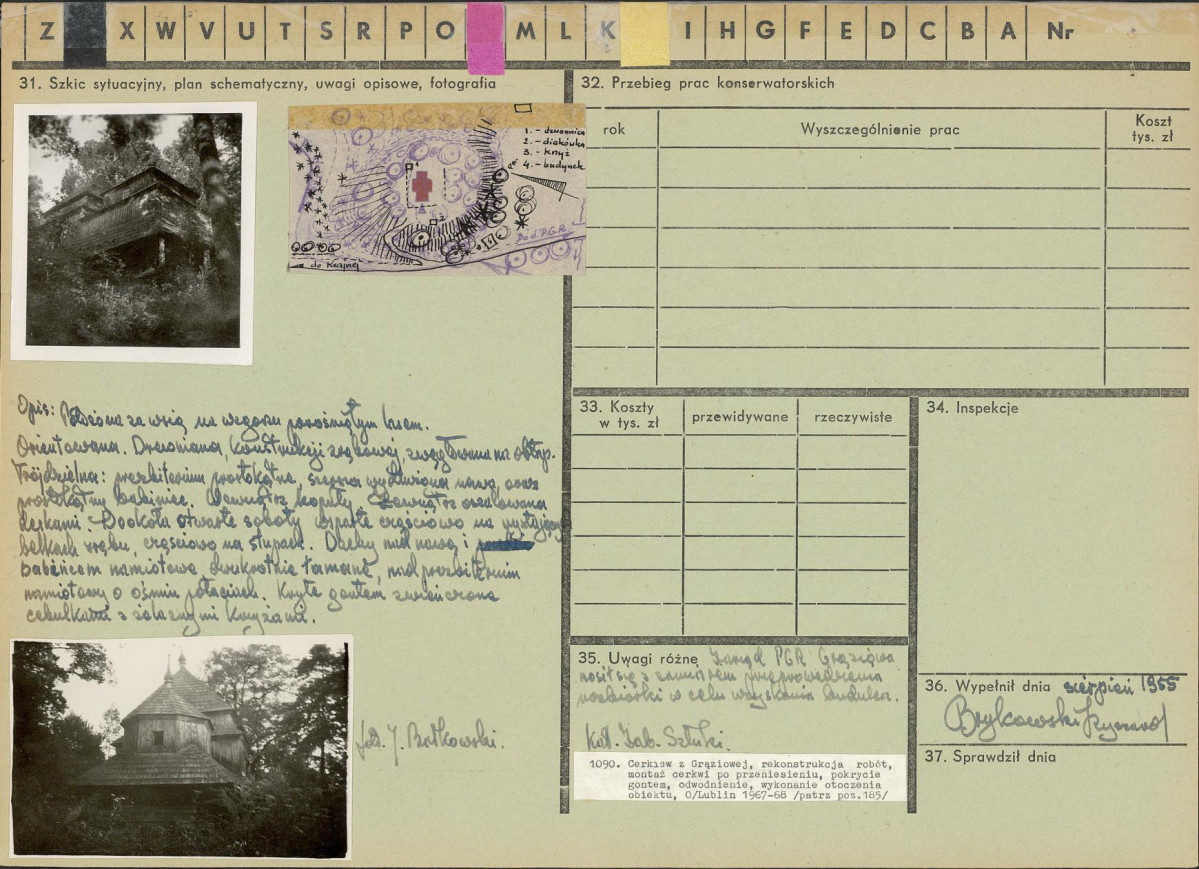 Z X W V U T S R P O M L K I H G F E D C B A Nr
31. Szkic sytuacyjny, plan schematyczny, uwagi opisowe, fotografia
1. - dzwonnica
2. - diakówka
3. - krzyż
4. - budynek
Do d. P.G.R.
do Krajnej
Opis: Położona za wsią na wzgórzu porośniętym lasem.
Orientowana. Drewniana, konstrukcji zrębowej, zwęgłowana na obłap.
Trójdzielna: prezbiterium prostokątne, szersza wydłużona nawa oraz
prostokątny babiniec. Wewnątrz kopuły. Zewnątrz oszalowana
deskami. Dookoła otwarte soboty wsparte częściowo na wystających
belkach zrębu, częściowo na słupach. Dachy nad nawą i
babińcem namiotowe dwukrotnie łamane, nad prezbiterium
namiotowy o ośmiu połaciach. Kryte gontem zwieńczone
cebulkami z żelaznymi krzyżami.
fot. J. Bułkowski.
32. Przebieg prac konserwatorskich
rok
Wyszczególnienie prac
Koszt
tys. zł
33. Koszty
w tys. zł
przewidywane
rzeczywiste
34. Inspekcje
35. Uwagi różne Zarząd PGR Grąziowa
nosił się z zamiarem przeprowadzenia
rozbiórki w celu uzyskania budulca.
Kat. Zab. Sztuki.
1090. Cerkiew z Grąziowej, rekonstrukcja robót,
montaż cerkwi po przeniesieniu, pokrycie
gontem, odwodnienie, wykonanie otoczenia
obiektu, O/Lublin 1967-68 /patrz poz.185/
36. Wypełnił dnia sierpień 1955
Brykowski Ryszard
37. Sprawdził dnia